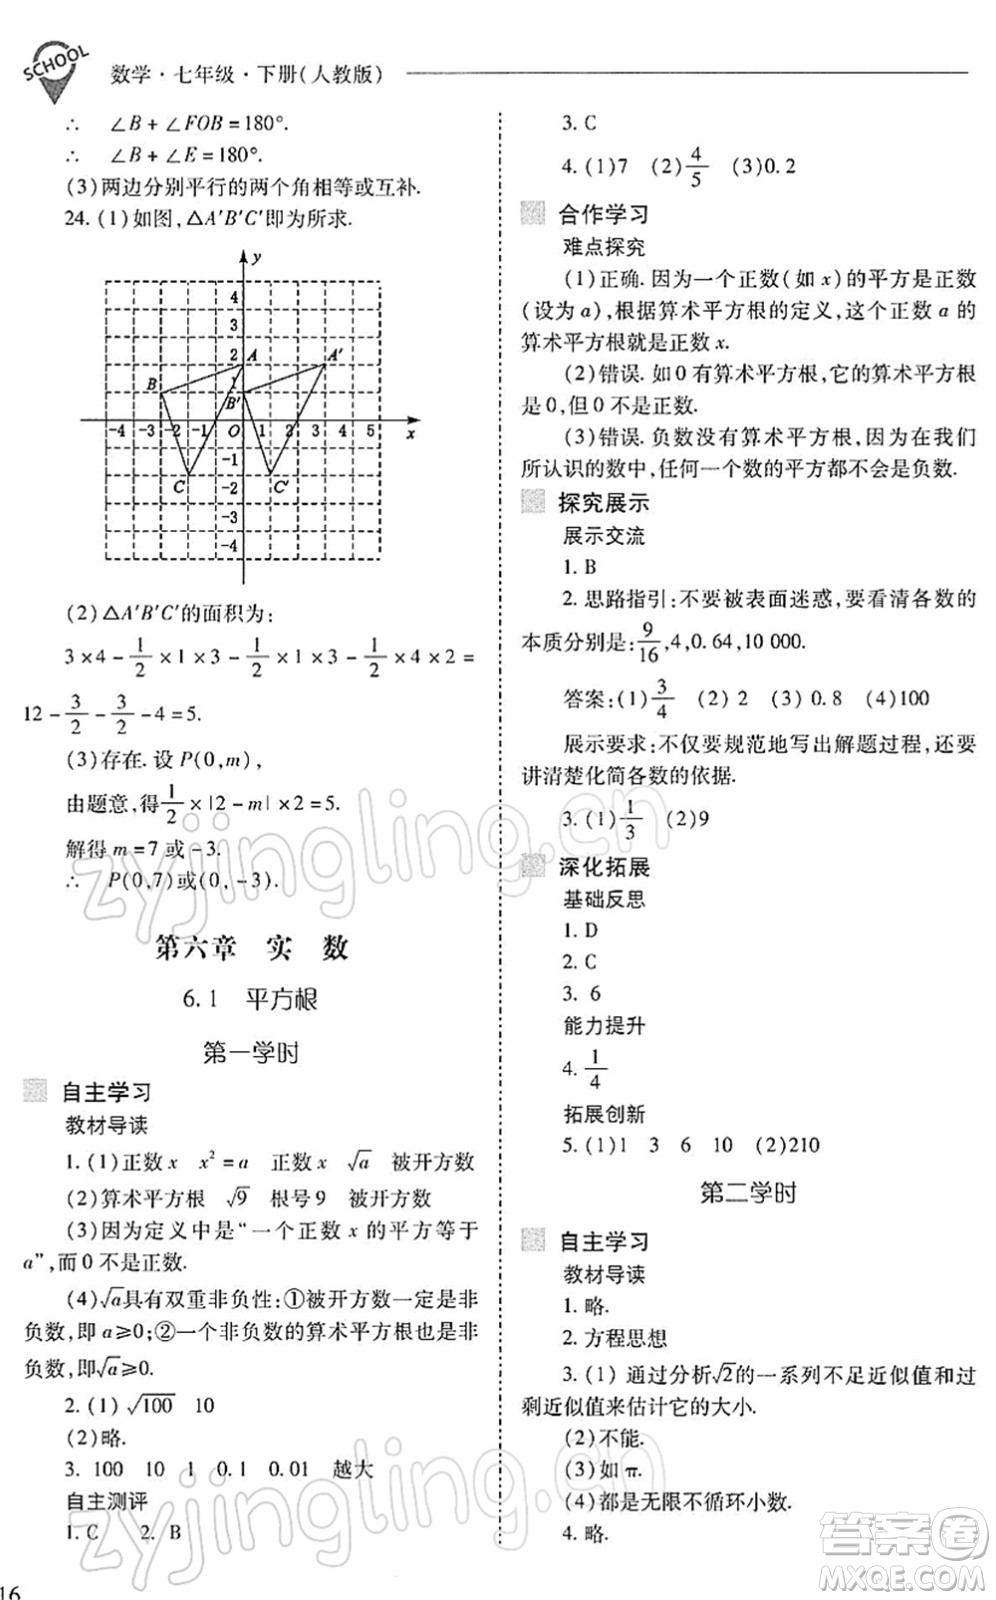 SCHOOL
数学·七年级·下册(人教版)
∴ ∠B+∠FOB=180°.
∴ ∠B+∠E=180°.
(3)两边分别平行的两个角相等或互补.
24. (1)如图,△A′B′C′即为所求.
y
4
3
2 A A′
B 1
B′
-4 -3 -2 -1 O 1 2 3 4 5 x
-1
C -2 C′
-3
-4
(2)△A′B′C′的面积为:
3×4-1/2×1×3-1/2×1×3-1/2×4×2=
12-3/2-3/2-4=5.
(3)存在. 设 P(0,m),
由题意,得1/2×|2-m|×2=5.
解得 m=7 或-3.
∴ P(0,7)或(0,-3).
第六章 实 数
6.1 平方根
第一学时
自主学习
教材导读
1. (1)正数 x x²=a 正数 x √a 被开方数
(2)算术平方根 √9 根号 9 被开方数
(3)因为定义中是“一个正数 x 的平方等于
a”,而 0 不是正数.
(4)√a具有双重非负性:①被开方数一定是非
负数,即 a≥0;②一个非负数的算术平方根也是非
负数,即√a≥0.
2. (1)√100 10
(2)略.
3. 100 10 1 0.1 0.01 越大
自主测评
1. C 2. B
16
3. C
4. (1)7 (2)4/5 (3)0.2
合作学习
难点探究
(1)正确. 因为一个正数(如 x)的平方是正数
(设为 a),根据算术平方根的定义,这个正数 a 的
算术平方根就是正数 x.
(2)错误. 如 0 有算术平方根,它的算术平方根
是 0,但 0 不是正数.
(3)错误. 负数没有算术平方根,因为在我们
所认识的数中,任何一个数的平方都不会是负数.
探究展示
展示交流
1. B
2. 思路指引:不要被表面迷惑,要看清各数的
本质分别是:9/16,4,0.64,10 000.
答案:(1)3/4 (2) 2 (3) 0.8 (4)100
展示要求:不仅要规范地写出解题过程,还要
讲清楚化简各数的依据.
3. (1)1/3 (2)9
深化拓展
基础反思
1. D
2. C
3. 6
能力提升
4. 1/4
拓展创新
5. (1)1 3 6 10 (2)210
第二学时
自主学习
教材导读
1. 略.
2. 方程思想
3. (1) 通过分析√2的一系列不足近似值和过
剩近似值来估计它的大小.
(2)不能.
(3)如 π.
(4)都是无限不循环小数.
4. 略.
zyjingling.com
zyjingling.cn
答案圈
MXQE.COM